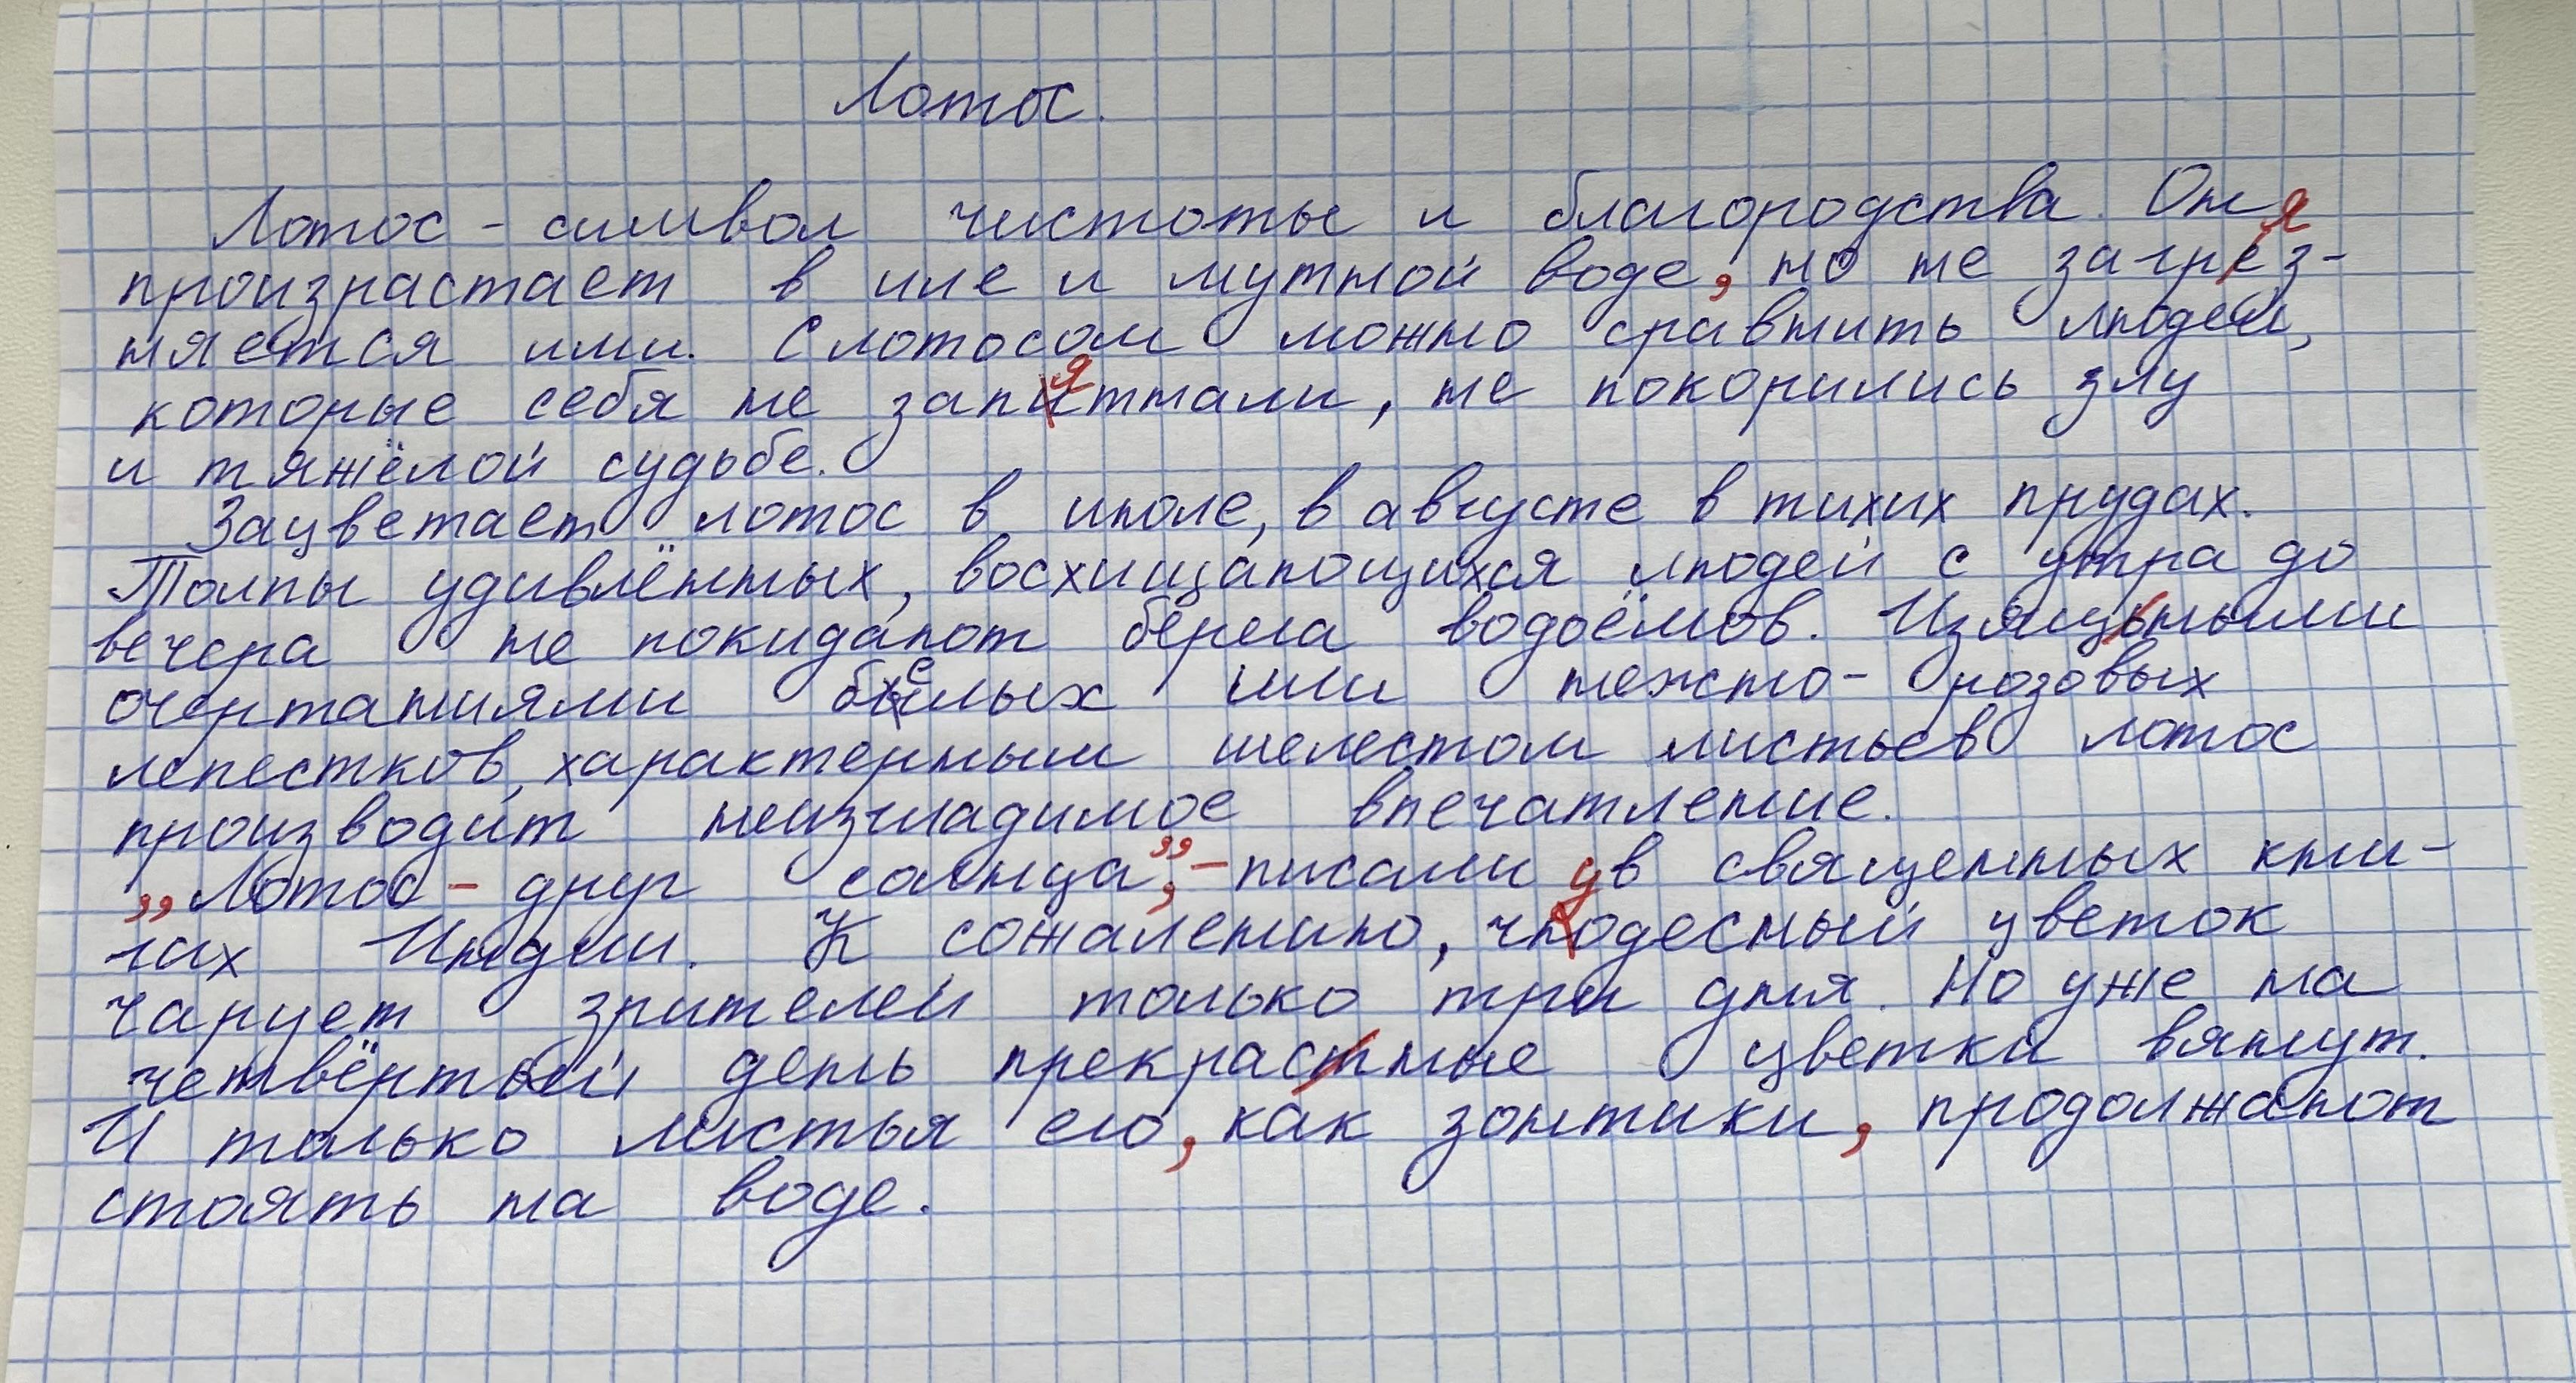 Лотос.
Лотос - символ чистоты и благородства. Он
произрастает в иле и мутной воде, но не загряз-
няется ими. С лотосом можно сравнить людей,
которые себя не запятнали, не покорились злу
и тяжёлой судьбе.
Зацветает лотос в июле, в августе в тихих прудах.
Толпы удивлённых, восхищающихся людей с утра до
вечера не покидают берега водоёмов. Изящными
очертаниями белых или нежно- розовых
лепестков, характерным шелестом листьев лотос
производит неизгладимое впечатление.
„Лотос - друг солнца”, - писали в священных кни-
гах Индии. К сожалению, чудесный цветок
чарует зрителей только три дня. Но уже на
четвёртый день прекрасные цветки вянут.
И только листья его, как зонтики, продолжают
стоять на воде.